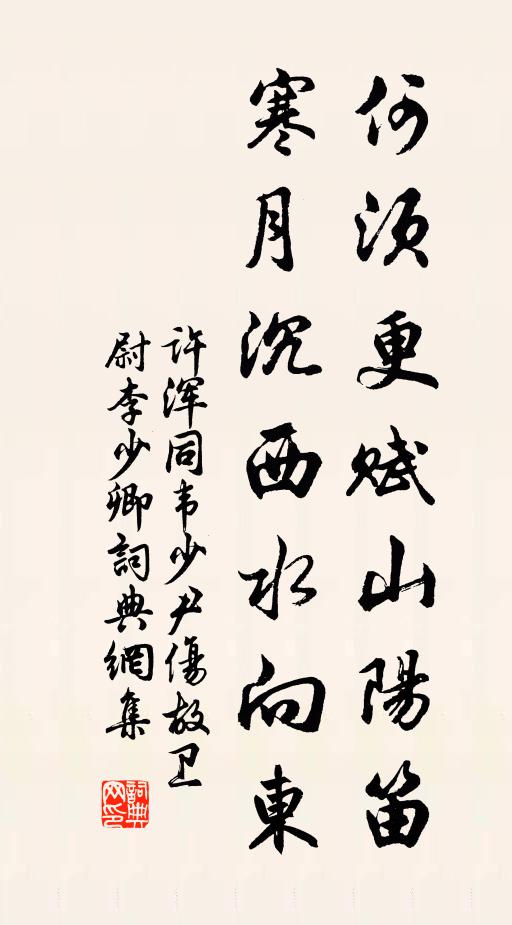 何须更赋山陽笛
寒月沉西水向東
许浑同韦少尹傷故卫
尉李少卿詞典網集
詞典
网印